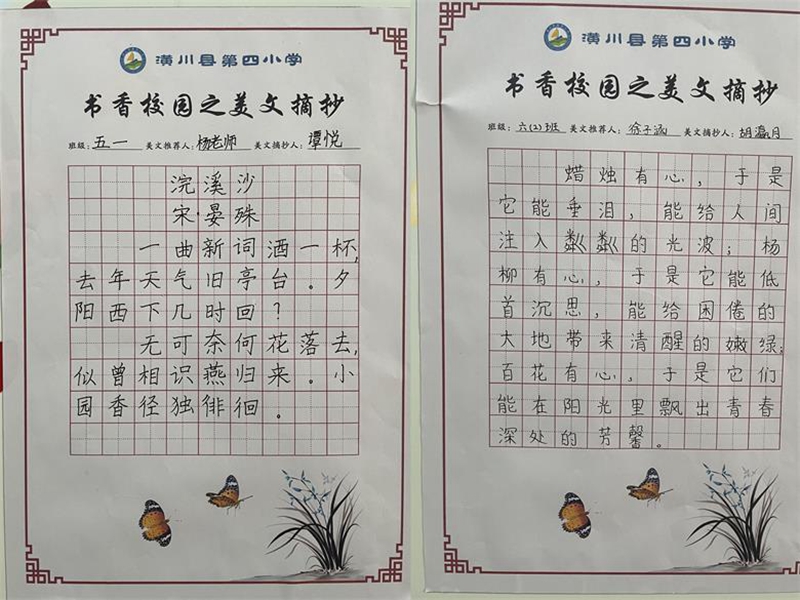 潢川县第四小学
书香校园之美文摘抄
班级：五一 美文推荐人：杨老师 美文摘抄人：谭悦
浣溪沙
宋·晏殊
一曲新词酒一杯,
去年天气旧亭台。夕
阳西下几时回？
无可奈何花落去,
似曾相识燕归来。小
园香径独徘徊。
潢川县第四小学
书香校园之美文摘抄
班级：六(2)班 美文推荐人：徐子涵 美文摘抄人：胡瀛月
蜡烛有心，于是
它能垂泪，能给人间
注入粼粼的光波；杨
柳有心，于是它能低
首沉思，能给困倦的
大地带来清醒的嫩绿；
百花有心，于是它们
能在阳光里飘出青春
深处的芳馨。